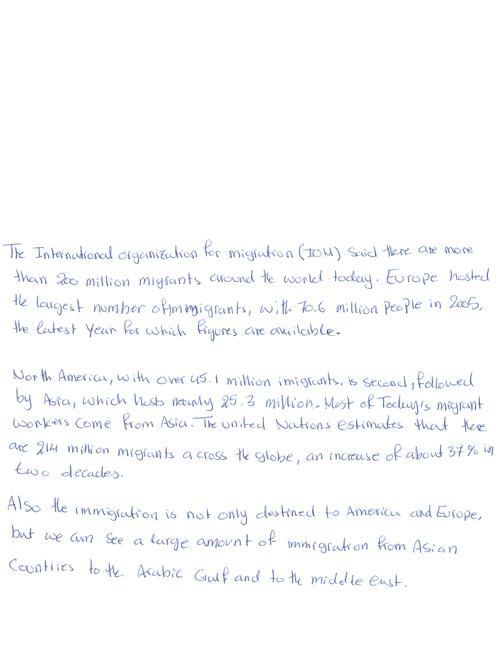 The International organization for migration (IOM) said there are more
than 200 million migrants around the world today. Europe hosted
the largest number of immigrants, with 70.6 million people in 2005,
the latest year for which figures are available.
North America, with over 45.1 million imigrants, is second, followed
by Asia, which hosts nearly 25.3 million. Most of Today's migrant
workers come from Asia. The united Nations estimates that there
are 214 million migrants across the globe, an increase of about 37% in
two decades.
Also the immigration is not only destined to America and Europe,
but we can see a large amount of immigration from Asian
Countries to the Arabic Gulf and to the middle east.